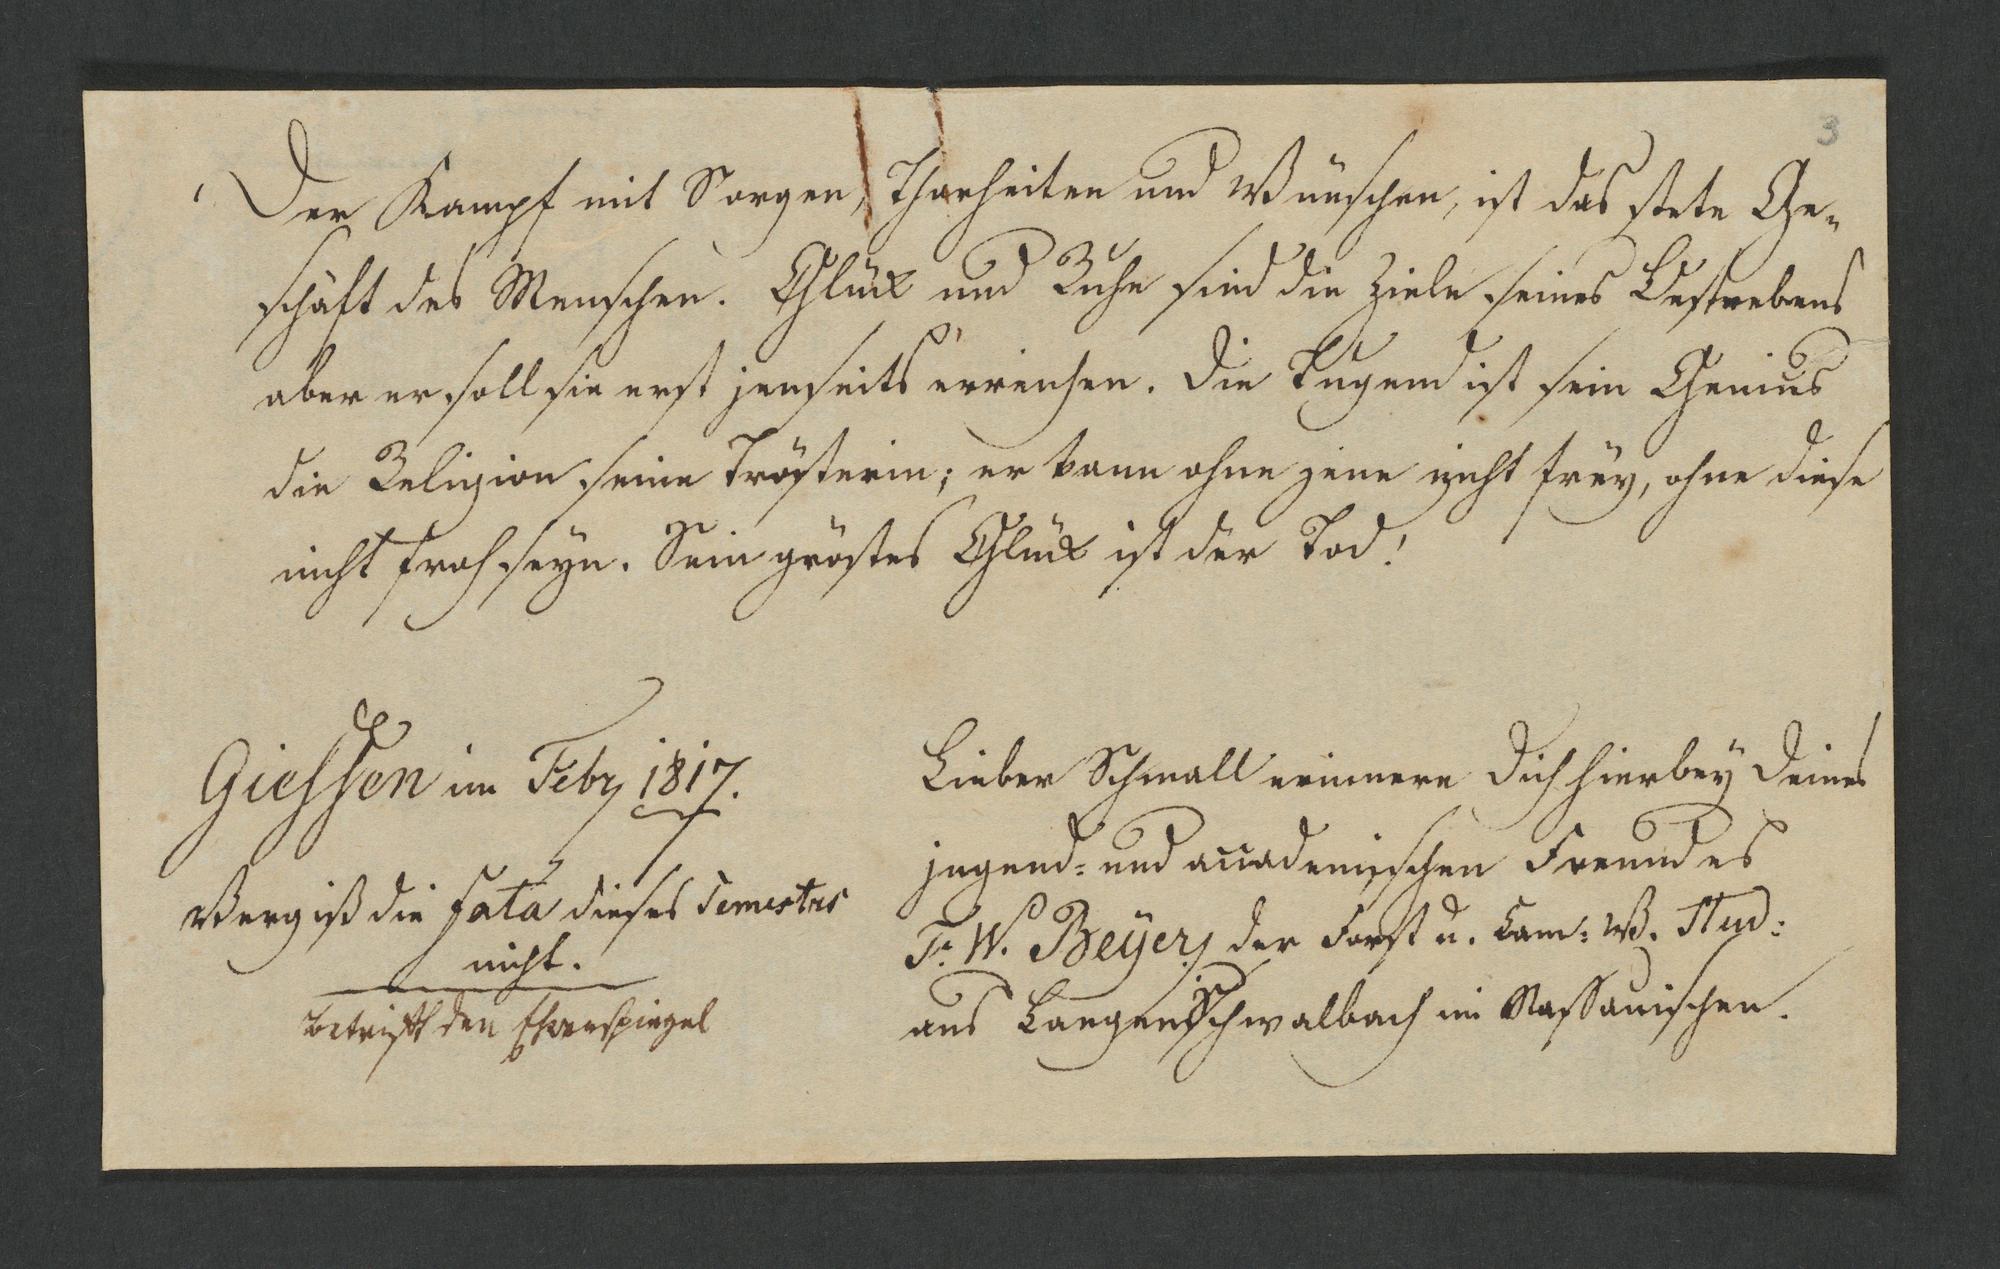 3
Der Kampf mit Sorgen, Thorheiten und Wünschen, ist das stete Ge-
schäft des Menschen. Glück und Ruhe sind die Ziele seines Bestrebens
aber er soll sie erst jenseits erreichen. Die Tugend ist sein Genius
die Religion seine Trösterin; er kann ohne jene nicht frey, ohne diese
nicht froh seyn. Sein gröstes Glück ist der Tod!
Giessen im Febr 1817.
Vergiß die fata dieses Semesters
nicht.
betrifft den Ehrenspiegel
Lieber Schmall erinnere Dich hierbey Deines
jugend- und accademischen Freundes
Fr. W. Beyer, der Forst u. Cam: W. Stud:
aus Langenschwalbach im Nassauischen.